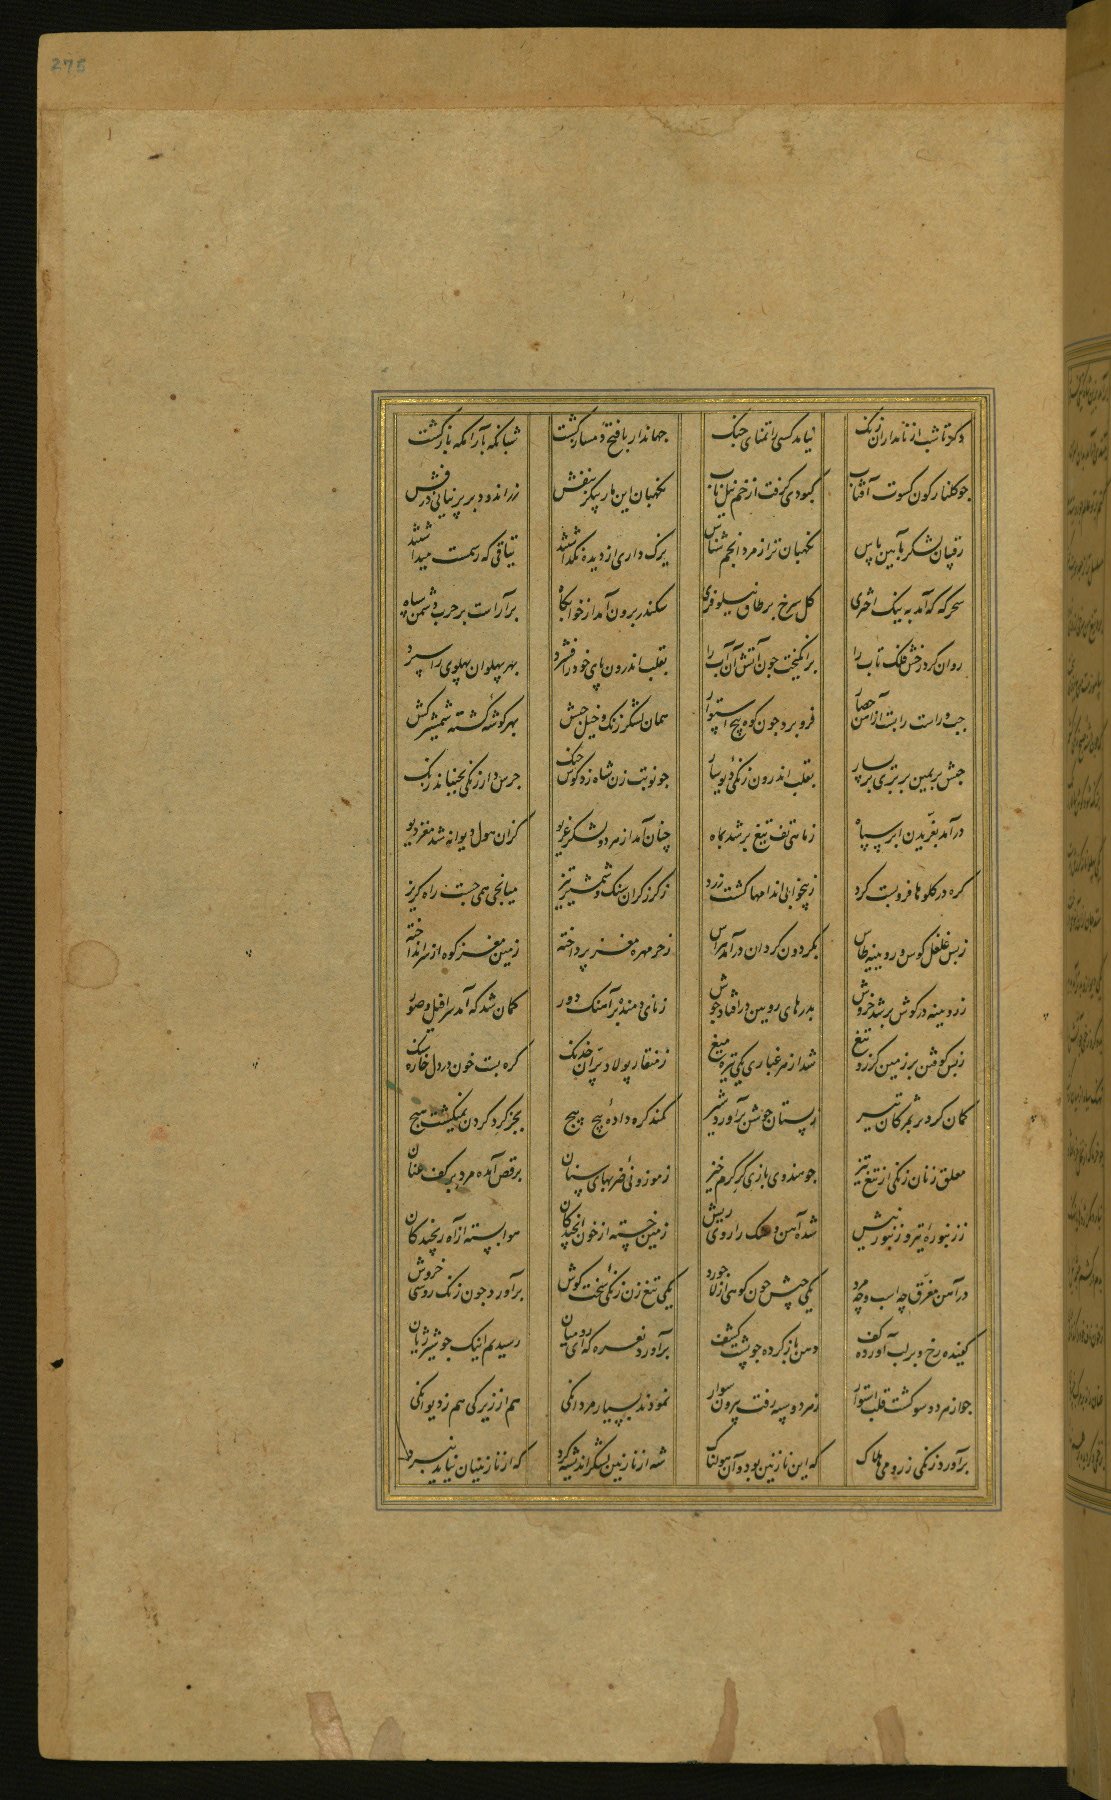 275
دکر تا شب از نامداران زنک نیامد کسی را تمنای جنک جهاندار با فتح دمساز کشت شبانکه بآرامکه باز کشت
جو کلنار کون کسوت آفتاب کبودی کرفت از خم نیل ناب نکهبان این مار پیکر بنفش زر اندود بر پرنیانی درفش
رقیبان لشکر بآیین پاس نکهبان تر از مرد انجم شناس یزک داری از دیده نکذاشتند یتاقی که رسمست میداشتند
سحرکه که آمد به نیک اختری کل سرخ بر طاق نیلوفری سکندر برون آمد از خوابکاه برآراست بر حرب دشمن سپاه
روان کرد رخش فلک تاب را برانکیخت جون آتش آن آب را بقلب اندرون پای خود را فشرد بهر پهلوان پهلوی را سپرد
جپ و راست رابست از آهن حصار فرو برد جون کوه پیخ استوار همان لشکر زنک و خیل حبش بهر کوشهٔ کشته شمشیر کش
حبش بر یمین بربری بر یسار بقلب اندرون زنکی دیوسار جو نوبت زن شاه زد کوس جنک جرس دار زنکی بجنباند زنک
درآمد بغرّیدن ابر سیاه ز ماهی تف تیغ بر شد بماه چنان آمد از هر دو لشکر غریو کزان هول دیوانه شد مغز دیو
کره در کلوها فرو بست کرد ز بیخوابی اندامها کشت زرد ز کرز کران سنک و شمشیر تیز میانجی همی جست راه کریز
ز بس غلغل کوس و رویینه طاس بکردون کردان درآمد هراس ز خرمهره مغز پرداخته زمین مغز کوه از سر انداخته
ز رویینه در کوش بر شد خروش بدرهای رویین در افتاد جوش ز نای دمنده برآهنک دور کمان شد که آمد سرافیل و صور
ز بس کوفتن بر زمین کرز و تیغ شد از هر غباری یکی تیره میغ ز منقار پولاد پرّان خدنک کره بست خون در دل خاره سنک
کمان کرد بر ثمرکان تیر ز پستان جوشن برآورد شیر کمند کره دادهٔ پیچ پیچ بجز کرد کردن نمیکشت هیچ
معلق زنان زنکی از تیغ تیز جو هندوی بازی کر کرم خیز ز موزونی ضربهای سنان برقص آمده مرد بر کف عنان
ز زنبورهٔ تیر زنبور نیش شده آهن و سنک را روی ریش زمین خسته از خون انجیدکان هوا بسته از آه رنجیدکان
در آهن مغرّق چه اسب و چه مرد یکی تیغ زن زنکی سخت کوش برآورد جون زنک روسی خروش
کفنده رخ و بر لب آورده کف دهن باز کرده جو پشت کشف برآورد نعره که ای رومیان رسیدم اینک جو شیر ژیان
جو از هر دو سو کشت قلب استوار ز هر دو سپه رفت بیرون سوار نمودند بسیار مردانکی هم از زیرکی هم ز دیوانکی
برآورد زنکی ز رومی هلاک که این نازنین بود و آن هولناک شه از نازنین لشکر اندیشه کرد که از نازنینان نیاید نبرد